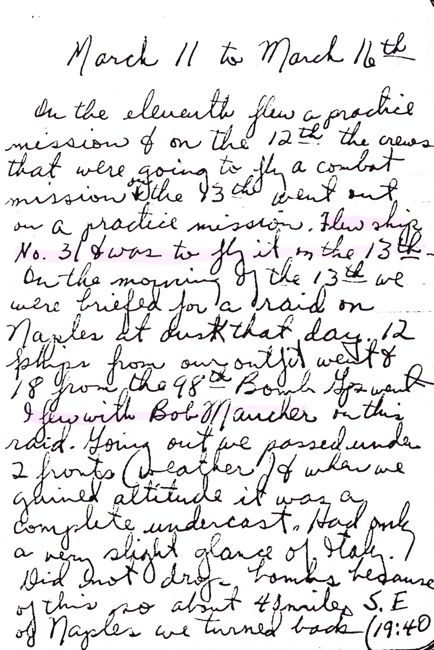 March 11 to March 16th
On the eleventh flew a practice
mission & on the 12th the crews
that were going to fly a combat
mission on the 13th went out
on a practice mission. Flew ship
No. 31 & was to fly it on the 13th.
On the morning of the 13th we
were briefed for a raid on
Naples at dusk that day. 12
ships from our outfit went &
18 from the 98th Bomb Gp went
I flew with Bob Maucher on this
raid. Going out we passed under
2 fronts (weather) & when we
gained altitude it was a
complete undercast. Had only
a very slight glance of Italy.
Did not drop bombs because
of this so about 45 miles S.E
of Naples we turned back (19:40